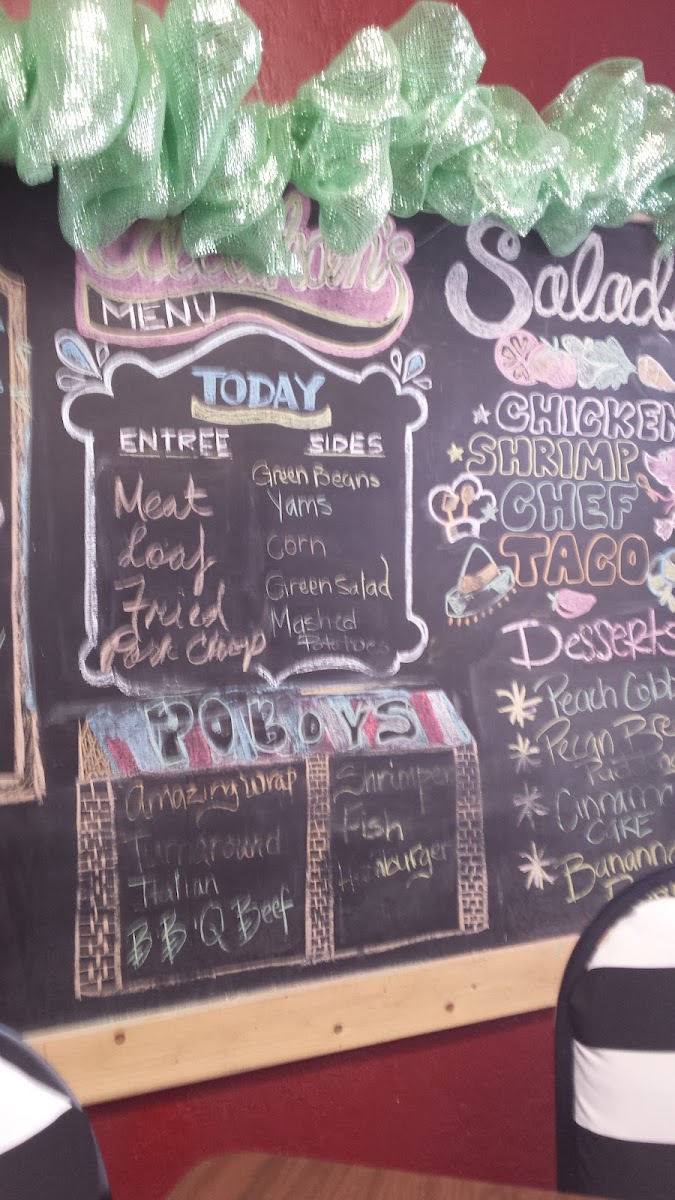 MENU
TODAY
ENTREE
Meat
Loaf
Fried
Pork Chop
SIDES
Green Beans
Yams
Corn
Green Salad
Mashed
Potatoes
POBOYS
Amazing Wrap
Turnaround
Italian
B B Q Beef
Shrimper
Fish
Hamburger
Salads
CHICKEN
SHRIMP
CHEF
TACO
Desserts
Peach Cobb
Pecan Bre
Pudding
Cinnamn
CAKE
Banann